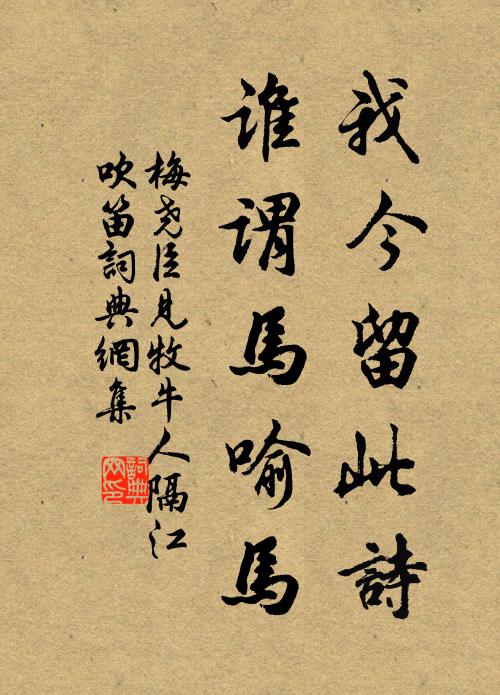 我今留此詩
誰謂馬喻馬
梅堯臣見牧牛人隔江
吹笛詞典網集
詞典
网印